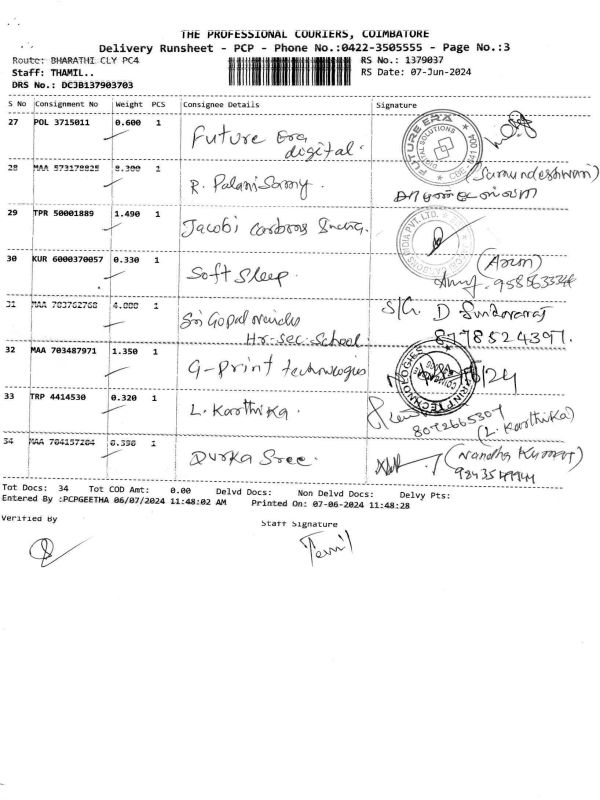 THE PROFESSIONAL COURIERS, COIMBATORE
Delivery Runsheet - PCP - Phone No.:0422-3505555 - Page No.:3
Route: BHARATHI CLY PC4 RS No.: 1379037
Staff: THAMIL.. RS Date: 07-Jun-2024
DRS No.: DCJB137903703
S No Consignment No Weight PCS Consignee Details Signature
27 POL 3715011 0.600 1 Future Era
digital.
FUTURE ERA
DIGITAL SOLUTIONS
28 MAA 573178825 8.300 1 R. Palanisamy. (Jamundeshwari)
29 TPR 50001889 1.490 1 Jacobi carbons
INDIA PVT. LTD.
30 KUR 6000370057 0.330 1 Soft sleep. (Arun)
31 MAA 703762768 4.000 1 Sri Gopal naidu S/G. D
Hr. sec. School. 8778524397.
32 MAA 703487971 1.350 1 G-Print technologies
G PRINT TECHNOLOGIES
33 TRP 4414530 0.320 1 L. Karthika. 8072665307
(L. Karthika)
34 MAA 704157284 8.390 1 Durka Sree. (Nandha Kumar)
Tot Docs: 34 Tot COD Amt: 0.00 Delvd Docs: Non Delvd Docs: Delvy Pts:
Entered By :PCPGEETHA 06/07/2024 11:48:02 AM Printed On: 07-06-2024 11:48:28
Verified By Staff Signature
Temil